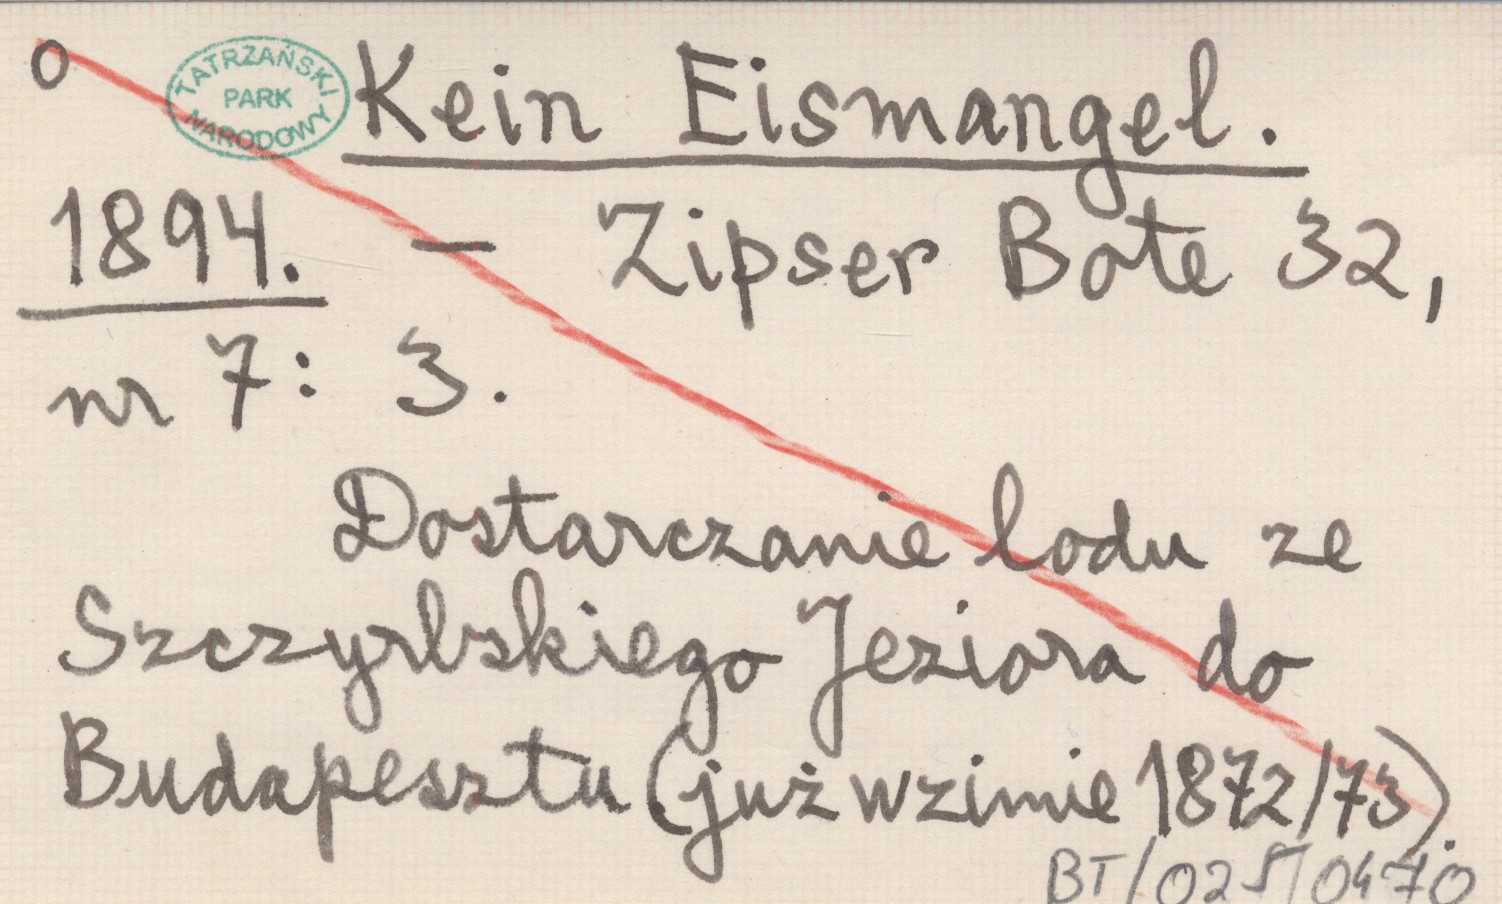 o TATRZAŃSKI PARK NARODOWY Kein Eismangel.
1894. — Zipser Bote 32,
nr 7: 3.
Dostarczanie lodu ze
Szczyrbskiego Jeziora do
Budapesztu (już w zimie 1872/73).
BT/025/0470